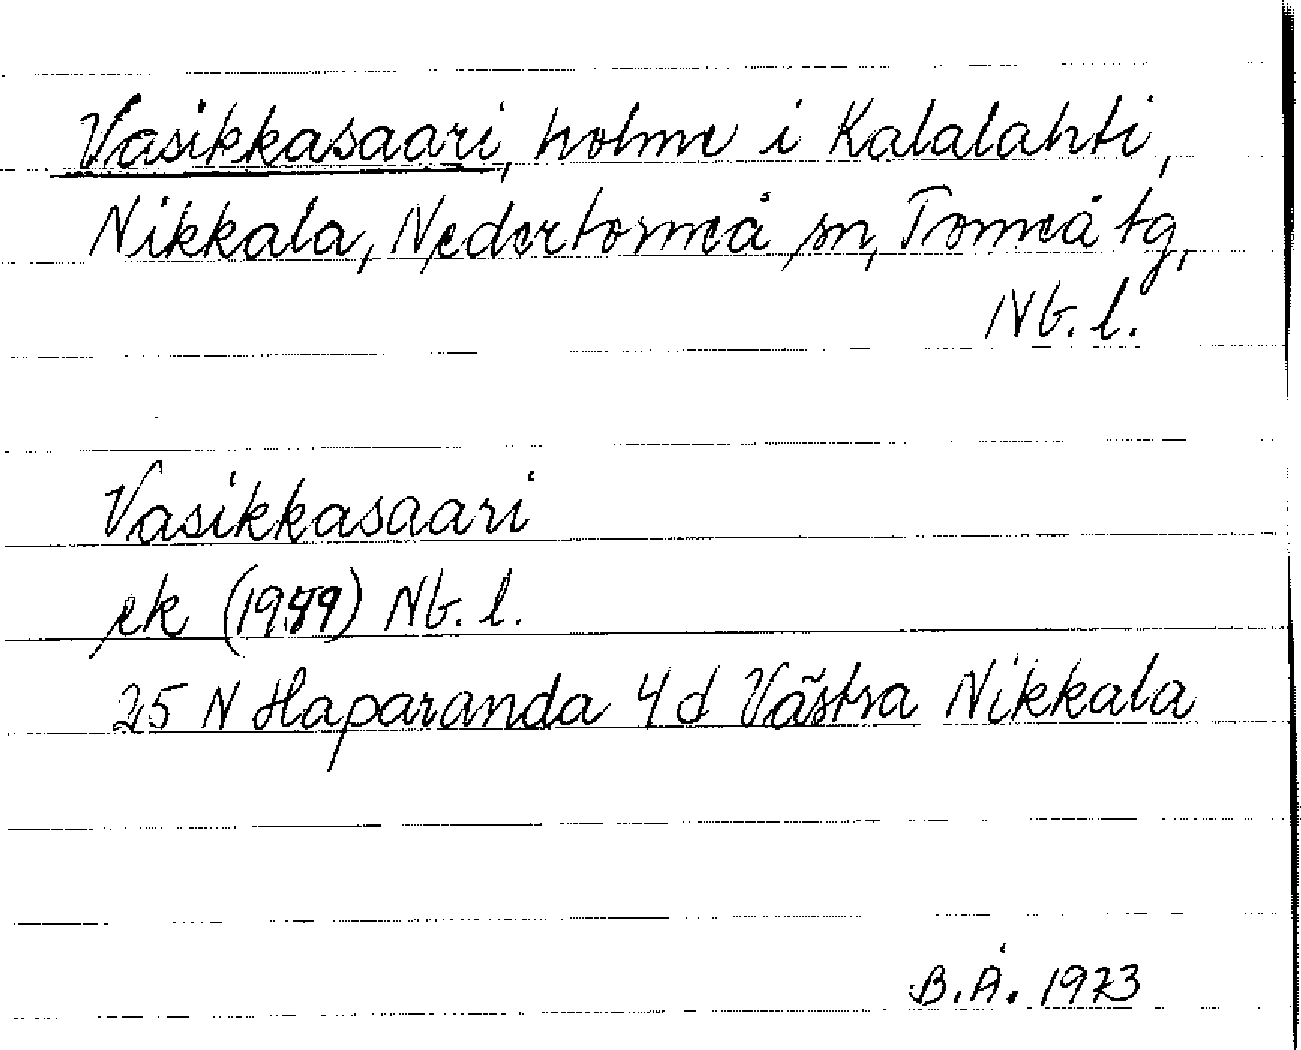 Vasikkasaari, holme i Kalalahti,
Nikkala, Nedertorneå sn, Torneå tg,
Nb. l.
Vasikkasaari
ek (1949) Nb. l.
25 N Haparanda 4d Västra Nikkala
B.Å. 1973